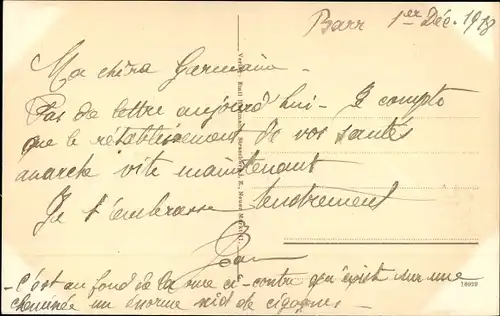 Barr 1er Déc. 1918
Ma chère Germaine
Pas de lettre aujourd'hui - Je compte
que le rétablissement de vos santés
marche vite maintenant
Je t'embrasse tendrement
Jean
- C'est au fond de la rue ci-contre qu'existe sur une
cheminée un énorme nid de cigognes -
18929